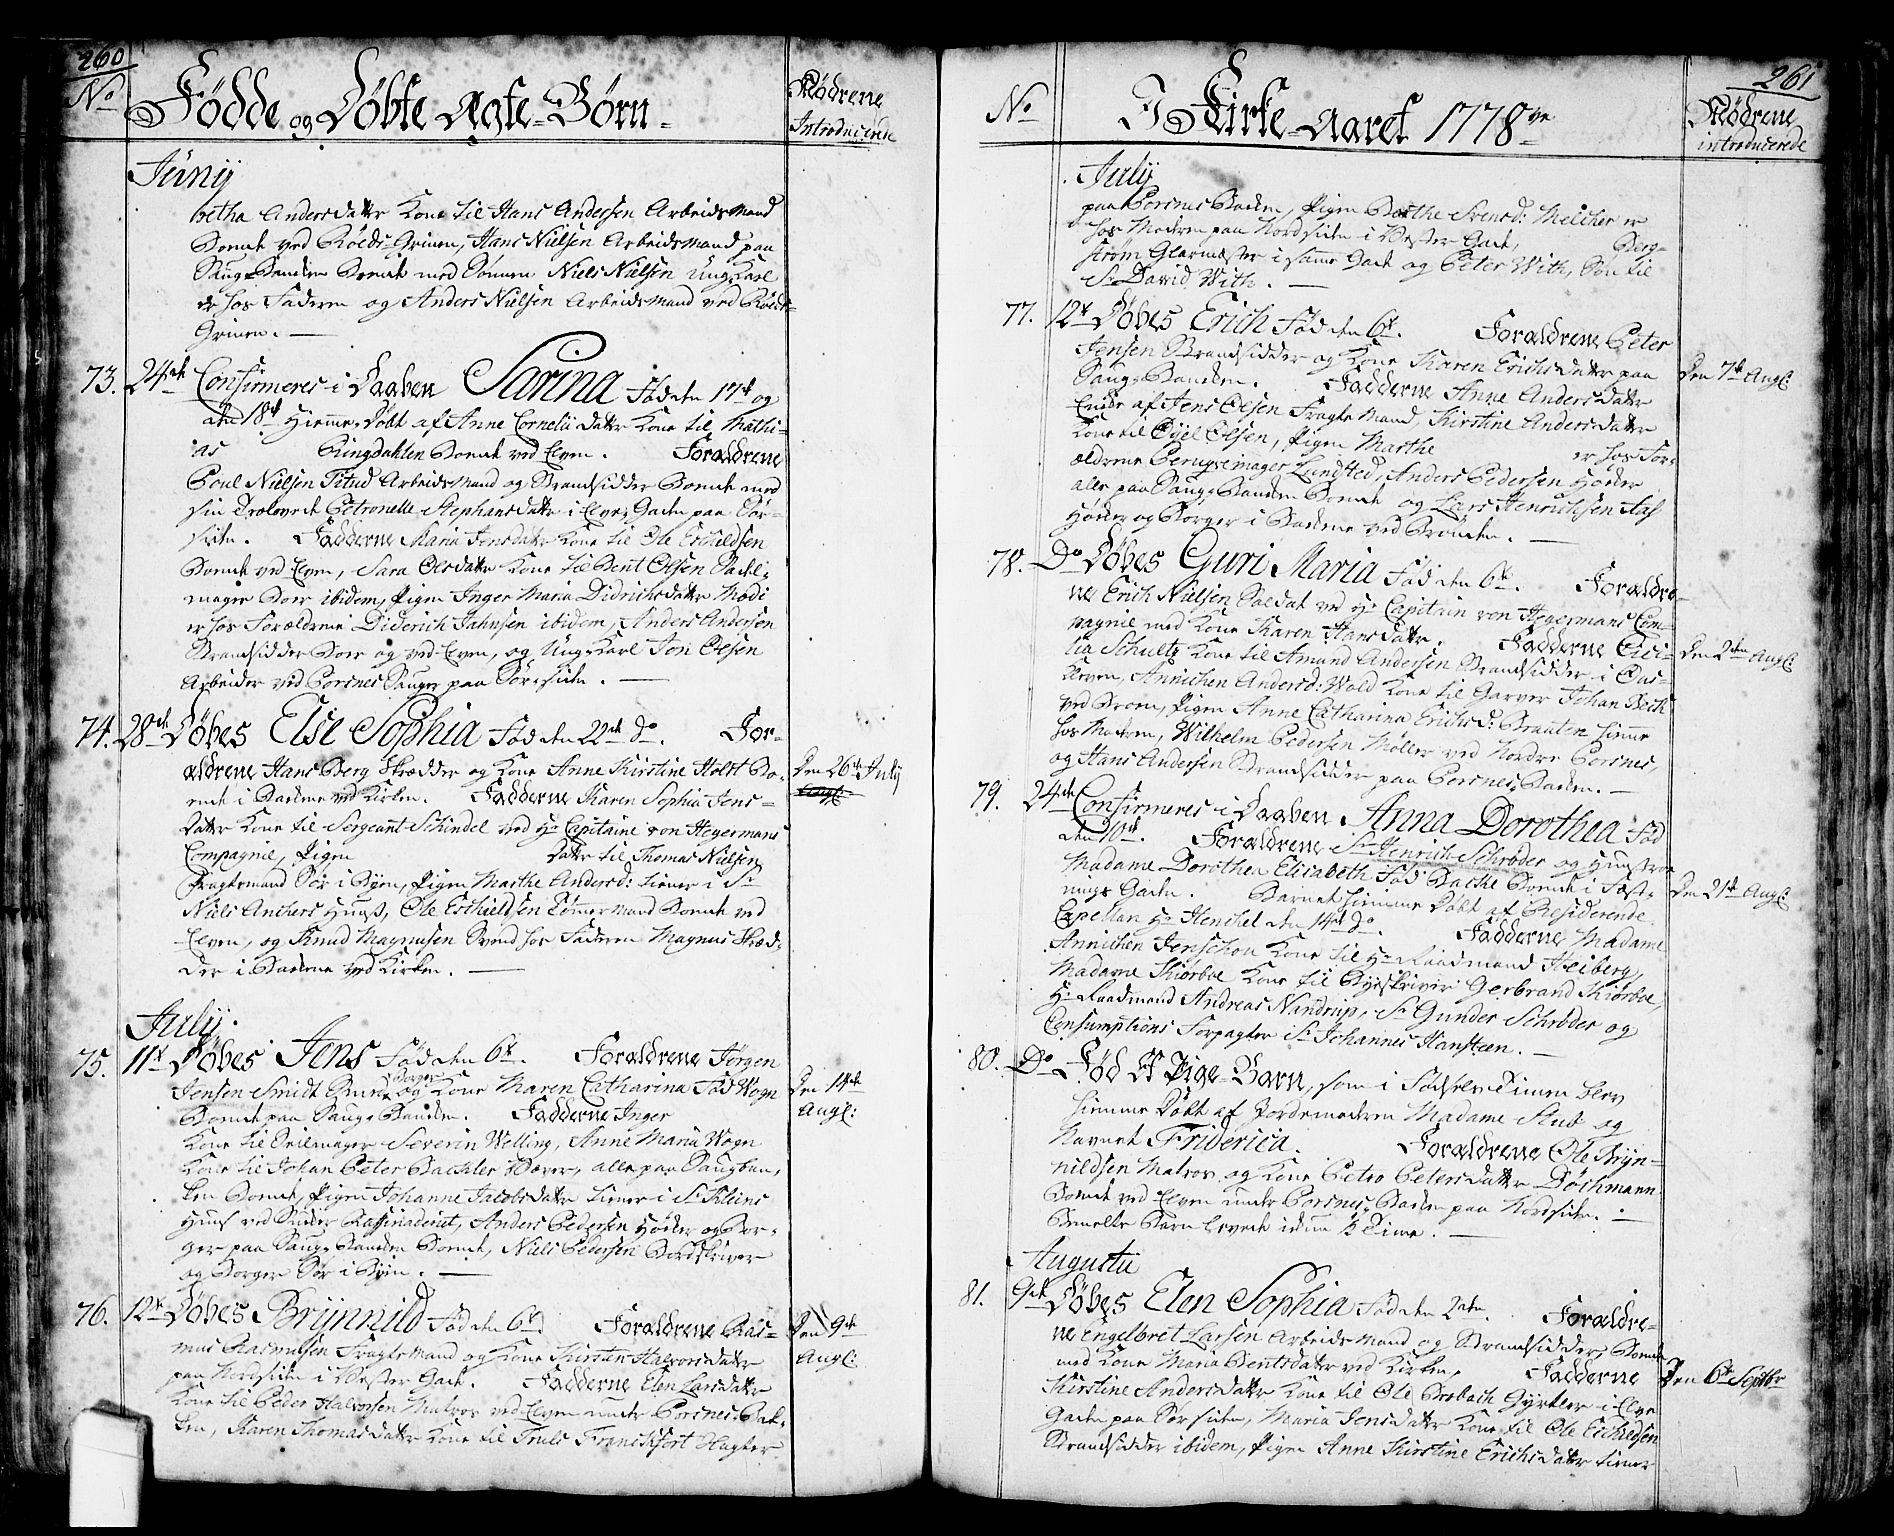 260
No
Fødde og Døbte Ægte-Børn
Mødrene
Introducerede
Junij
betha Andersdatter Kone til Hans Andersen Arbeidsmand
Boende ved Røeds-Grinen, Hans Nielsen Arbeidsmand paa
Saug-Banden Boende med Sønnen Niels Nielsen Ung-Karl
er hos Faderen og Anders Nielsen Arbeidsmand ved Røeds-
Grinen.
73. 24de Confirmeres i Daaben Sarina Fød den 17de og
den 18de Hiemme-Døbt af Anne Cornelii datter Kone til Mathi-
as Ringdahlen Boende ved Elven. Forældrene
Poul Nielsen Titud Arbeidsmand og Strandsidder Boende med
sin Trolovede Petronelle Stephansdatter i Elve-Gaden paa Sør-
siden. Fadderne Maria Jensdatter Kone til Ole Eskildsen
Boende ved Elven, Sara Olsdatter Kone til Bent Olsen Sadel-
mager Boer ibidem, Pigen Inger Maria Didrichsdatter Modi
er hos Forældrene Diderich Jahnsen ibidem, Anders Andersen
Strandsidder Boer og ved Elven, og Ung-Karl Jon Olsen
Arbeider ved Porsnes Sauge paa Sør-siden.
74. 28de Døbes Else Sophia Fød den 22de Do. For-
ældrene Hans Berg Skrædder og Kone Anne Kirstine Holst Bo-
ende i Bakkene ved Kirken. Fadderne Karen Sophia Jens-
datter Kone til Sergeant Schindel ved Hr Capitaine von Hegermans
Compagnie, Pigen datter til Thomas Nielsen
Fragtemand Sør i Byen, Pigen Marthe Andersd: tiener i Sr
Niels Anchers Huuss, Ole Eschieldsen Tømmermand Boende ved
Elven, og Knud Magnusen Svend hos Faderen Magnus Skræd-
der i Bakkene ved Kirken.
Den 26de July
July
75. 11te Døbes Jens Fød den 6te. Forældrene Jørgen
Jensen Smidt Borger og Kone Maren Catharina Fød Wogn
Boende paa Saug-Banden. Fadderne Inger
Kone til Seilmager Severin Welling, Anne Maria Wogn
Kone til Johan Peter Bachler Væver, alle paa Saugban-
ken Boende, Pigen Johanne Jacobsdatter tiener i Sr Kleins
Huus ved Sukker Raffinaderiet, Anders Pedersen Høker og Bor-
ger paa Saug-Banden Boende, Niels Pedersen Bordskriver
og Borger Sør i Byen.
Den 14de
Augt:
76. 12te Døbes Brynnild Fød den 6te. Forældrene Ras-
mus Rasmussen Fragtemand og Kone Kirsten Halvorsdatter
paa Nordsiden i Vester Gade. Fadderne Elen Larsdatter
Kone til Peder Halvorsen Matros ved Elven under Porsnes-Bak-
ken, Karen Thomasdatter Kone til Truls Franckfort Slagter
Den 9de
Augt:
261
No
I Kirke-Aaret 1778de
Mødrene
introducerede
July
paa Porsnes Banden, Pigen Berthe Svensd: Melcher er
hos Moderen paa Nordsiden i Vester Gade, Berg-
strøm Glarmester i samme Gade og Peter With, Søn til
Sr David With.
77. 12te Døbes Erich Fød den 6te. Forældrene Peter
Jensen Strandsidder og Kone Karen Erichsdatter paa
Saug-Banden. Fadderne Anne Andersdatter
Enke af Jens Olsen Fragtemand, Kirstine Andersdatter
Kone til Eyel Olsen, Pigen Marthe er hos For-
ældrene Peruqvemager Lundsted, Anders Pedersen Høker
alle paa Saug-Banden Boende og Lars Henrichsen Aas
Høker og Borger i Bakkene ved Brønden.
Den 7de Augt:
78. Do Døbes Guri Maria Fød den 6te. Forældre-
ne Erich Nielsen Soldat ved Hr Capitain von Hegermans Com-
pagnie med Kone Karen Hansdatter. Fadderne Cici-
lia Schultz Kone til Amund Andersen Strandsidder i Das-
kleven, Annichen Andersd: Wold Kone til Garver Johan Beck
ved Broen, Pigen Anne Catharina Erichsd: Braaten hiemme
hos Moderen, Wilhelm Pedersen Møller ved Nordre Porsnes,
og Hans Andersen Strandsidder paa Porsnes-Banden.
Den 2den Augt:
79. 24de Confirmeres i Daaben Anna Dorothea Fød
den 10de. Forældrene Sr Henrich Schrøder og Hustroe
Madame Dorothea Elisabeth Fød Backe Boende i Fæst-
nings Gaden. Barnet hiemme Døbt af Residerende
Capellan Hr Henchel den 14de Do. Fadderne Madame
Annichen Jenschou Kone til Hr Raadmand Heiberg,
Madame Kiørboe Kone til Byeskriver Gerbrand Kiørboe,
Hr Raadmand Andreas Nandrup, Sr Gunder Schrøder og
Consumptions Forpagter Sr Johannes Hansteen.
Den 21de Augt:
80. Do Fød Et Pige-Barn, som i Fødsels-Timen blev
hiemme Døbt af Jordemoderen Madame Stub og
Navnet Friderica. Forældrene Ole Bryn-
nildsen Matros og Kone Petro Petersdatter Døchmann
Boende ved Elven under Porsnes-Banden paa Nordsiden.
Bemelte Barn levede ikkun ½ Time.
Augustii
81. 9de Døbes Elen Sophia Fød den 2den. Forældre-
ne Engelbret Larsen Arbeidsmand og Strandsidder, Boende
med Kone Maria Bentsdatter ved Kirken, Fadderne
Kirstine Andersdatter Kone til Ole Brobach Gyrtler i Elve
Gaden paa Sørsiden, Maria Jensdatter Kone til Ole Eschildsen
Strandsidder ibidem, Pigen Anne Kirstine Erichsdatter tiener
Den 6te Septbr